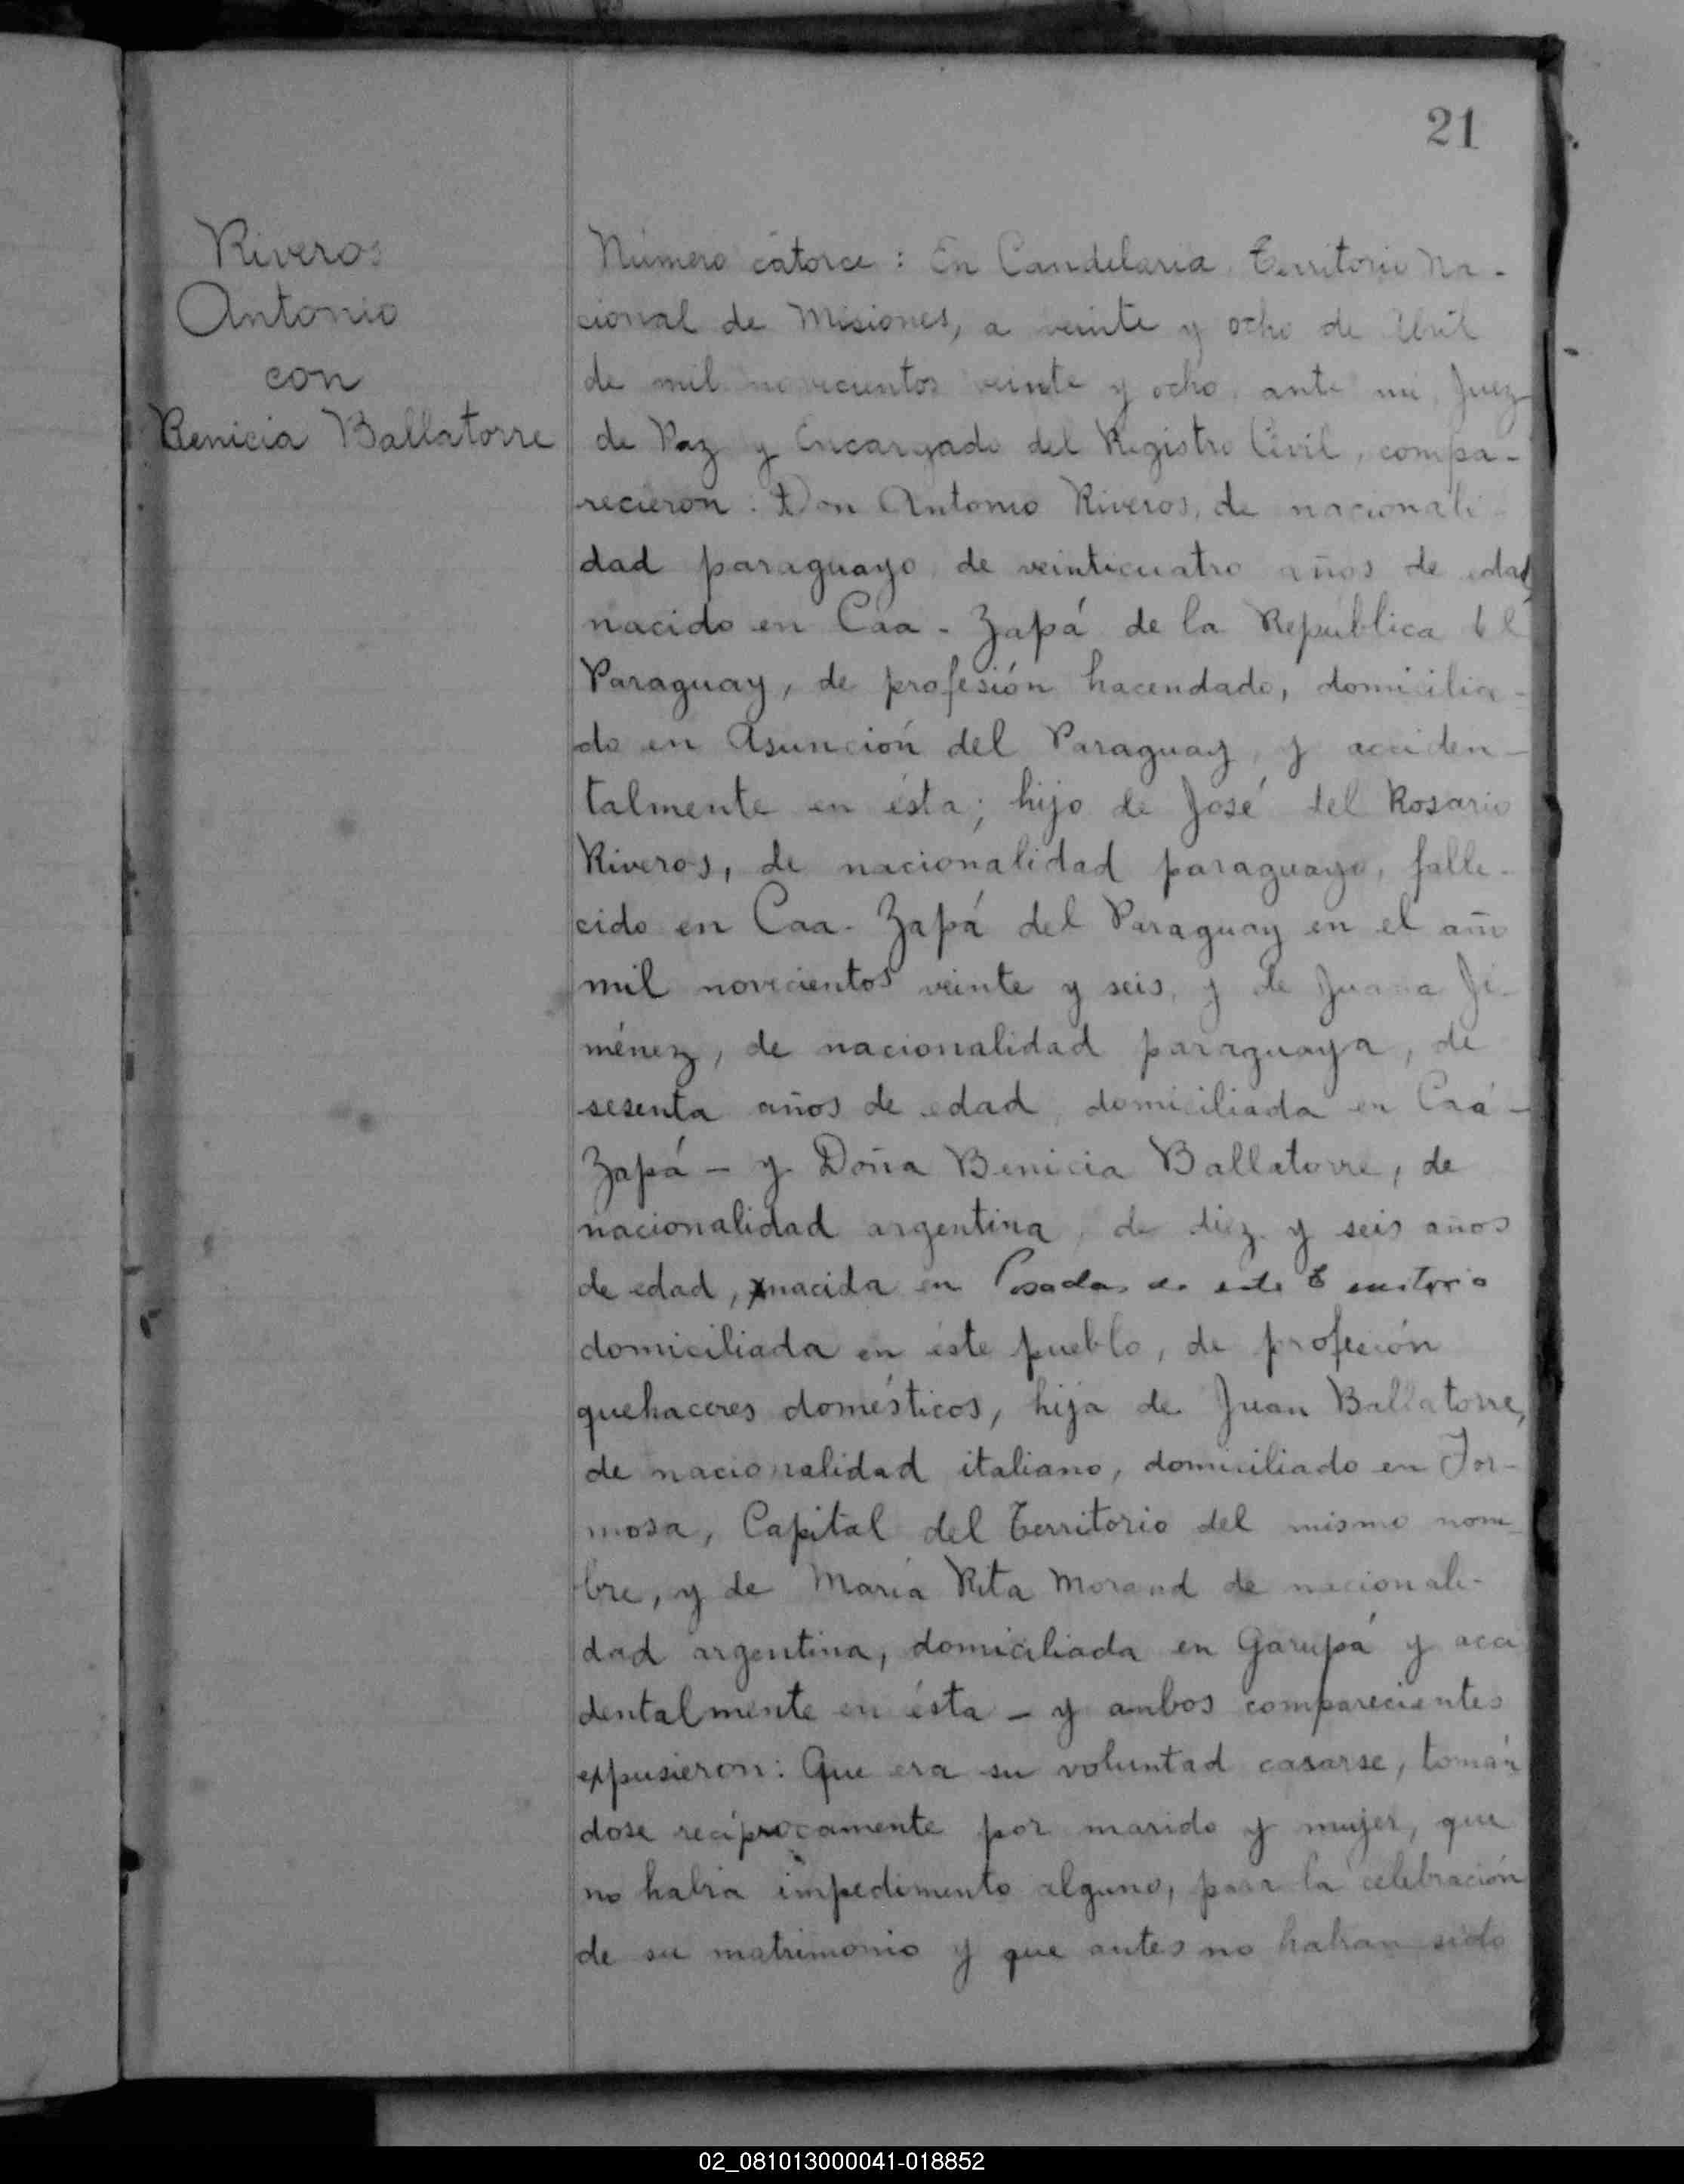 21
Riveros
Antonio
con
Benicia Ballatorre
Número catorce: En Candelaria, Territorio Na-
cional de Misiones, a veinte y ocho de Abril
de mil novecientos veinte y ocho, ante mi, Juez
de Paz y Encargado del Registro Civil, compa-
recieron: Don Antonio Riveros, de nacionali-
dad paraguayo, de veinticuatro años de edad,
nacido en Caa-Zapá de la Republica del
Paraguay, de profesión hacendado, domicilia-
do en Asunción del Paraguay, y acciden-
talmente en ésta; hijo de José del Rosario
Riveros, de nacionalidad paraguayo, falle-
cido en Caa-Zapá del Paraguay en el año
mil novecientos veinte y seis, y de Juana Ji-
ménez, de nacionalidad paraguaya, de
sesenta años de edad, domiciliada en Caá-
Zapá - y Doña Benicia Ballatorre, de
nacionalidad argentina, de diez y seis años
de edad, nacida en Posadas de este Territorio
domiciliada en éste pueblo, de profesión
quehaceres domésticos, hija de Juan Ballatorre,
de nacionalidad italiano, domiciliado en For-
mosa, Capital del Territorio del mismo nom-
bre, y de María Rita Morand de nacionali-
dad argentina, domiciliada en Garupá y acci
dentalmente en ésta - y ambos comparecientes
expusieron: Que era su voluntad casarse, tomán
dose recíprocamente por marido y mujer, que
no había impedimento alguno, para la celebración
de su matrimonio y que antes no habían sido
02_081013000041-018852